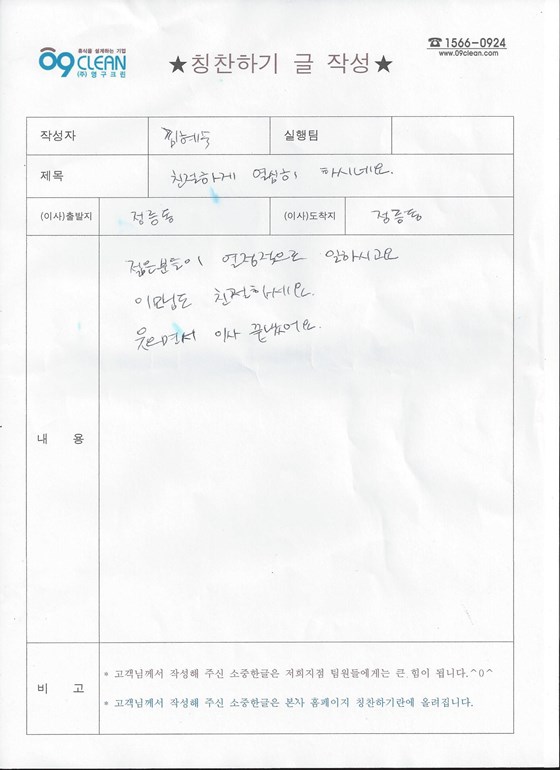 휴식을 설계하는 기업
09CLEAN
(주)영구크린
★칭찬하기 글 작성★
☎1566-0924
www.09clean.com
작성자 김혜숙 실행팀
제목 친절하게 열심히 하시네요.
(이사)출발지 정릉동 (이사)도착지 정릉동
내 용
젊은분들이 열정적으로 일하시고요
이모님도 친절하세요.
웃으면서 이사 끝냈어요.
비 고
* 고객님께서 작성해 주신 소중한글은 저희지점 팀원들에게는 큰 힘이 됩니다.^0^
* 고객님께서 작성해 주신 소중한글은 본사 홈페이지 칭찬하기란에 올려집니다.